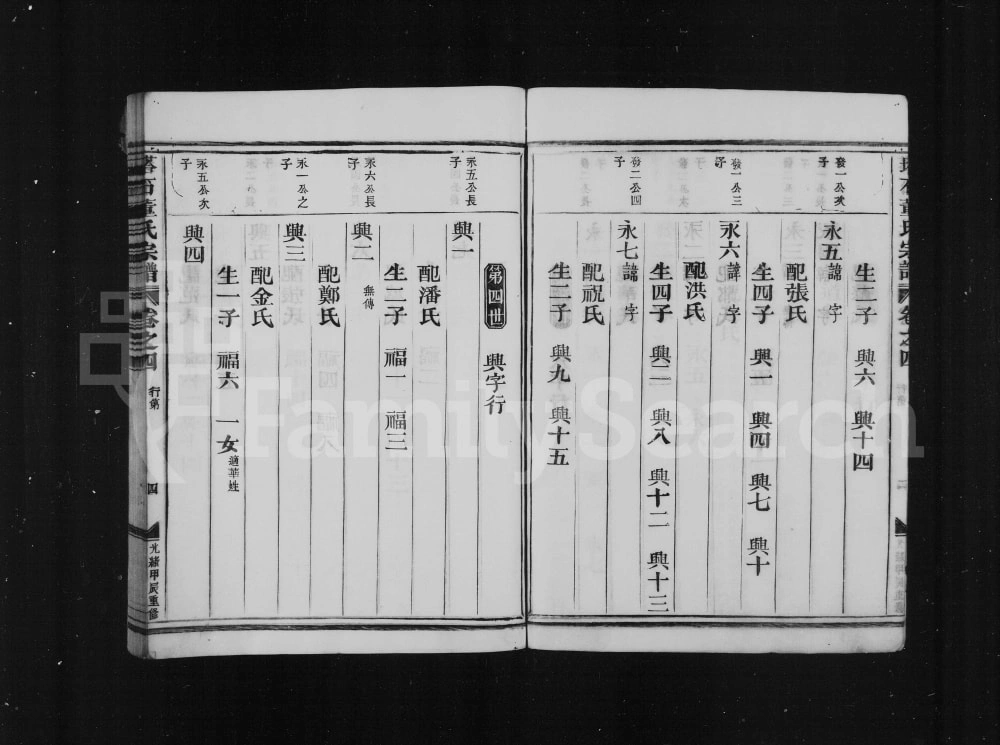 生二子 興六 興十四
發一公次子
永五 諱 字
配張氏
生四子 興一 興四 興七 興十
發一公三子
永六 諱 字
配洪氏
生四子 興二 興八 興十二 興十三
發二公四子
永七 諱 字
配祝氏
生二子 興九 興十五
第四世 興字行
永五公長子
興一
配潘氏
生二子 福一 福三
永六公長子
興二 無傳
配鄭氏
永一公之子
興三
配金氏
生一子 福六 一女 適華姓
永五公次子
興四
塔石董氏宗譜 卷之四 行第 四 光緒甲辰重修
FamilySearch